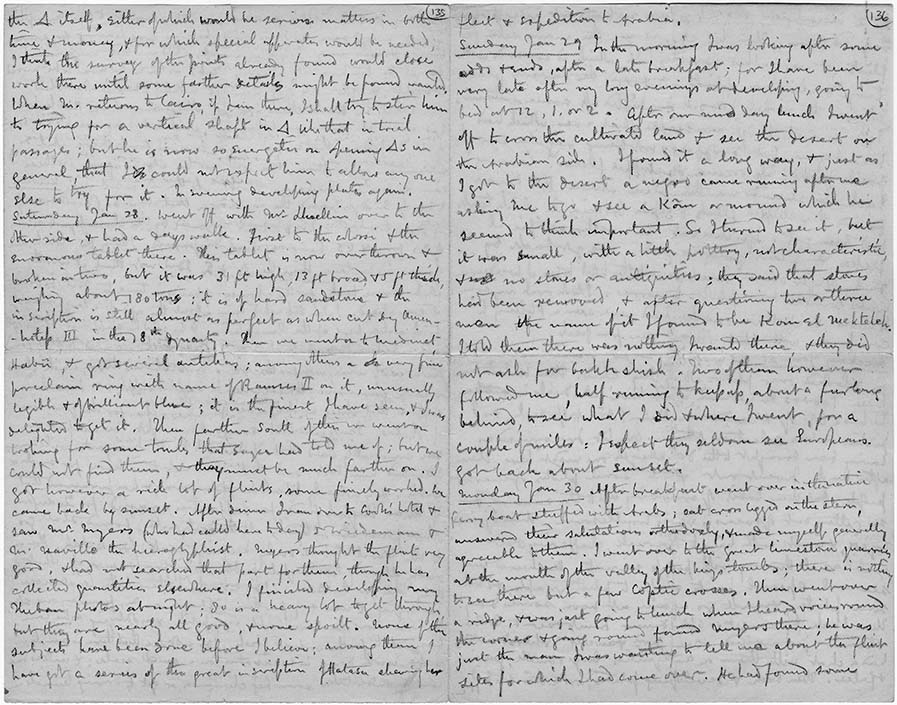 135
the Δ itself, either of which would be serious matters in both
time & money, & for which special apparatus would be needed,
I think the survey of the points already found would close
work there until some further details might be found wanted.
When Mr. returns to Cairo, if I am there, I shall try to stir him
to trying for a vertical shaft in Δ like that in trial
passages; but he is now so energetic on opening Δs in
general that I could not expect him to allow any one
else to try for it. In evening developing plates again.
Saturday Jan 28. Went off with Mr. over to the
other side, & had a days walk. First to the colossi & the
enormous tablet there. This tablet is now overthrown &
broken in two, but it was 31 ft high, 13 ft broad & 5 ft thick,
weighing about 180 tons; it is of hard sandstone & the
inscription is still almost as perfect as when cut by Amen-
-hotep III in the 18th dynasty. Then we went on to Medinet
Habu, & got several antikas; among others a very fine
porcelain ring with name of Ramses II on it, unusually
legible & of brilliant blue; it is the finest I have seen, & I was
delighted to get it. Then farther South of this we went on
looking for some tombs that Sayce had told me of; but we
could not find them, & they must be much farther on. I
got however a rich lot of flints, some finely worked. We
came back by sunset. After dinner I ran over to Cook's hotel &
saw Mr. Myers (who had called here to day) & Wiedemann &
Mr. Naville the hieroglyphist. Myers thought the flints very
good, & had not searched that part for them, though he has
collected quantities elsewhere. I finished developing my
Theban photos at night; 80 is a heavy lot to get through
but they are nearly all good, & none spoilt. Some of the
subjects have been done before I believe; among them I
have got a series of the great inscription of Hatasu shewing her
136
fleet & expedition to Arabia.
Sunday Jan 29 In the morning I was looking after some
odds & ends, after a late breakfast; for I have been
very late after my long evenings at developing, going to
bed at 12, 1, or 2. After our mid day lunch I went
off to cross the cultivated land & see the desert on
the Arabian side. I found it a long way, & just as
I got to the desert a negro came running after me
asking me to go & see a Kom or mound which he
seemed to think important. So I turned to see it, but
it was small, with a little pottery, not characteristic,
& no stones or antiquities; they said that stones
had been removed & after questioning two or three
men the name of it I found to be Kom el
I told them there was nothing I wanted there & they did
not ask for bakhshish. Two of them however
followed me, half running to keep up, about a furlong
behind, to see what I did & where I went, for a
couple of miles: I expect they seldom see Europeans.
Got back about sunset.
Monday Jan 30 After breakfast went over in the native
ferry boat stuffed with Arabs; sat cross legged on the stern,
answered their salutations orthodoxly, & made myself generally
agreeable to them. I went over to the great limestone quarries
at the mouth of the valley of the kings tombs: there is nothing
to see there but a few Coptic crosses. Then went over
a ridge, & was just going to lunch when I heard voices round
the corner & going round found Myers there; he was
just the man I was wanting to tell me about the flint
sites for which I had come over. He had found some